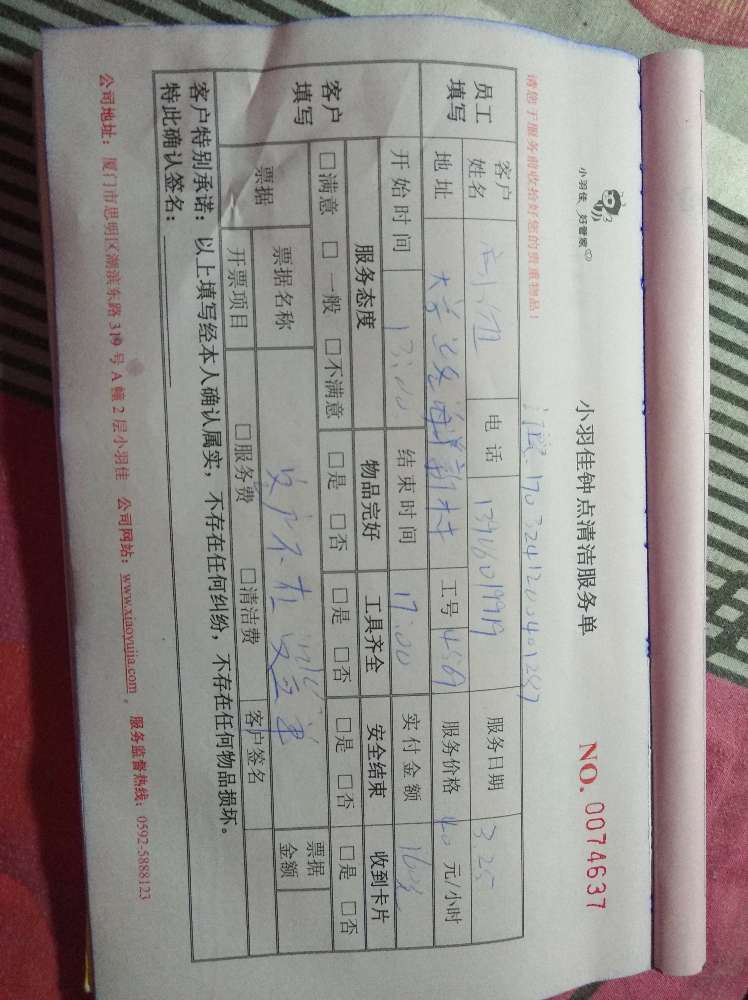 小羽佳 好管家
小羽佳钟点清洁服务单
NO. 0074637
请您于服务前收拾好您的贵重物品！
员工填写
客户姓名 电话 服务日期 3.25
地址 工号 4569 服务价格 40 元/小时
开始时间 13:00 结束时间 17:00 实付金额 160元
客户填写
服务态度 物品完好 工具齐全 安全结束 收到卡片
□满意 □一般 □不满意 □是 □否 □是 □否 □是 □否 □是 □否
票据 票据名称 客户不在 票据金额
开票项目 □服务费 □清洁费 客户签名
客户特别承诺：以上填写经本人确认属实，不存在任何纠纷，不存在任何物品损坏。
特此确认签名：
公司地址：厦门市思明区湖滨东路319号A幢2层小羽佳 公司网站：www.xiaoyujia.com 。 服务监督热线：0592-5888123